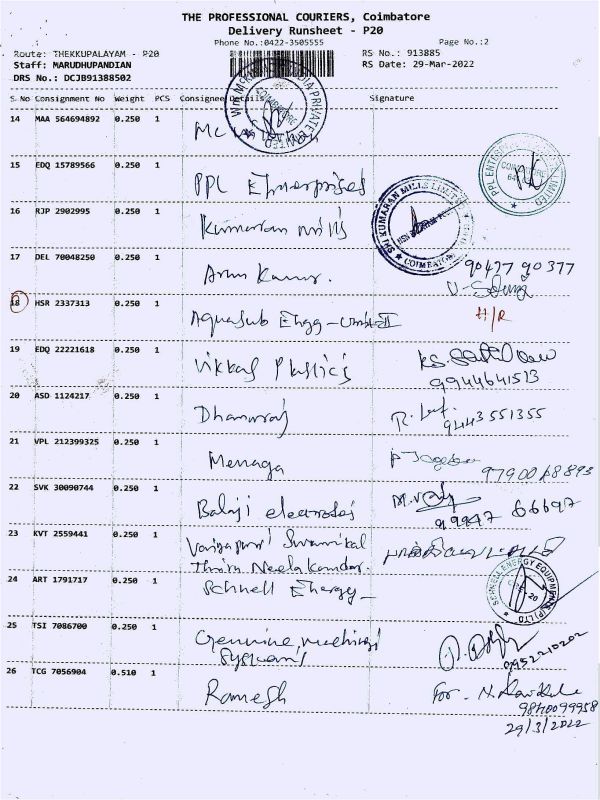 THE PROFESSIONAL COURIERS, Coimbatore
Delivery Runsheet - P20
Phone No.:0422-3505555
Page No.:2
Route: THEKKUPALAYAM - P20
RS No.: 913885
Staff: MARUDHUPANDIAN
RS Date: 29-Mar-2022
DRS No.: DCJB91388502
S.No Consignment No Weight PCS Consignee Details Signature
14 MAA 564694892 0.250 1
15 EDQ 15789566 0.250 1 PPL Enterprises
16 RJP 2902995 0.250 1 Kumaran mills
SRI KUMARAN MILLS LIMITED
COIMBATORE
17 DEL 70048250 0.250 1 Arun Kumar. 90477 90377
18 HSR 2337313 0.250 1 Aquasub Engg - Unit-II H/R
19 EDQ 22221618 0.250 1 Vikkas Plastics
9944641513
20 ASD 1124217 0.250 1 Dhanraj
9443551355
21 VPL 212399325 0.250 1 Menaga
22 SVK 30090744 0.250 1 Balaji electrodes
99947 66697
23 KVT 2559441 0.250 1
Thiru Neelakandar.
24 ART 1791717 0.250 1 Schnell Energy
SCHNELL ENERGY EQUIPMENTS (P) LTD
25 TSI 7086700 0.250 1 Genuine
9952210202
26 TCG 7056904 0.510 1 Ramesh For.
9840099958
29/3/2022